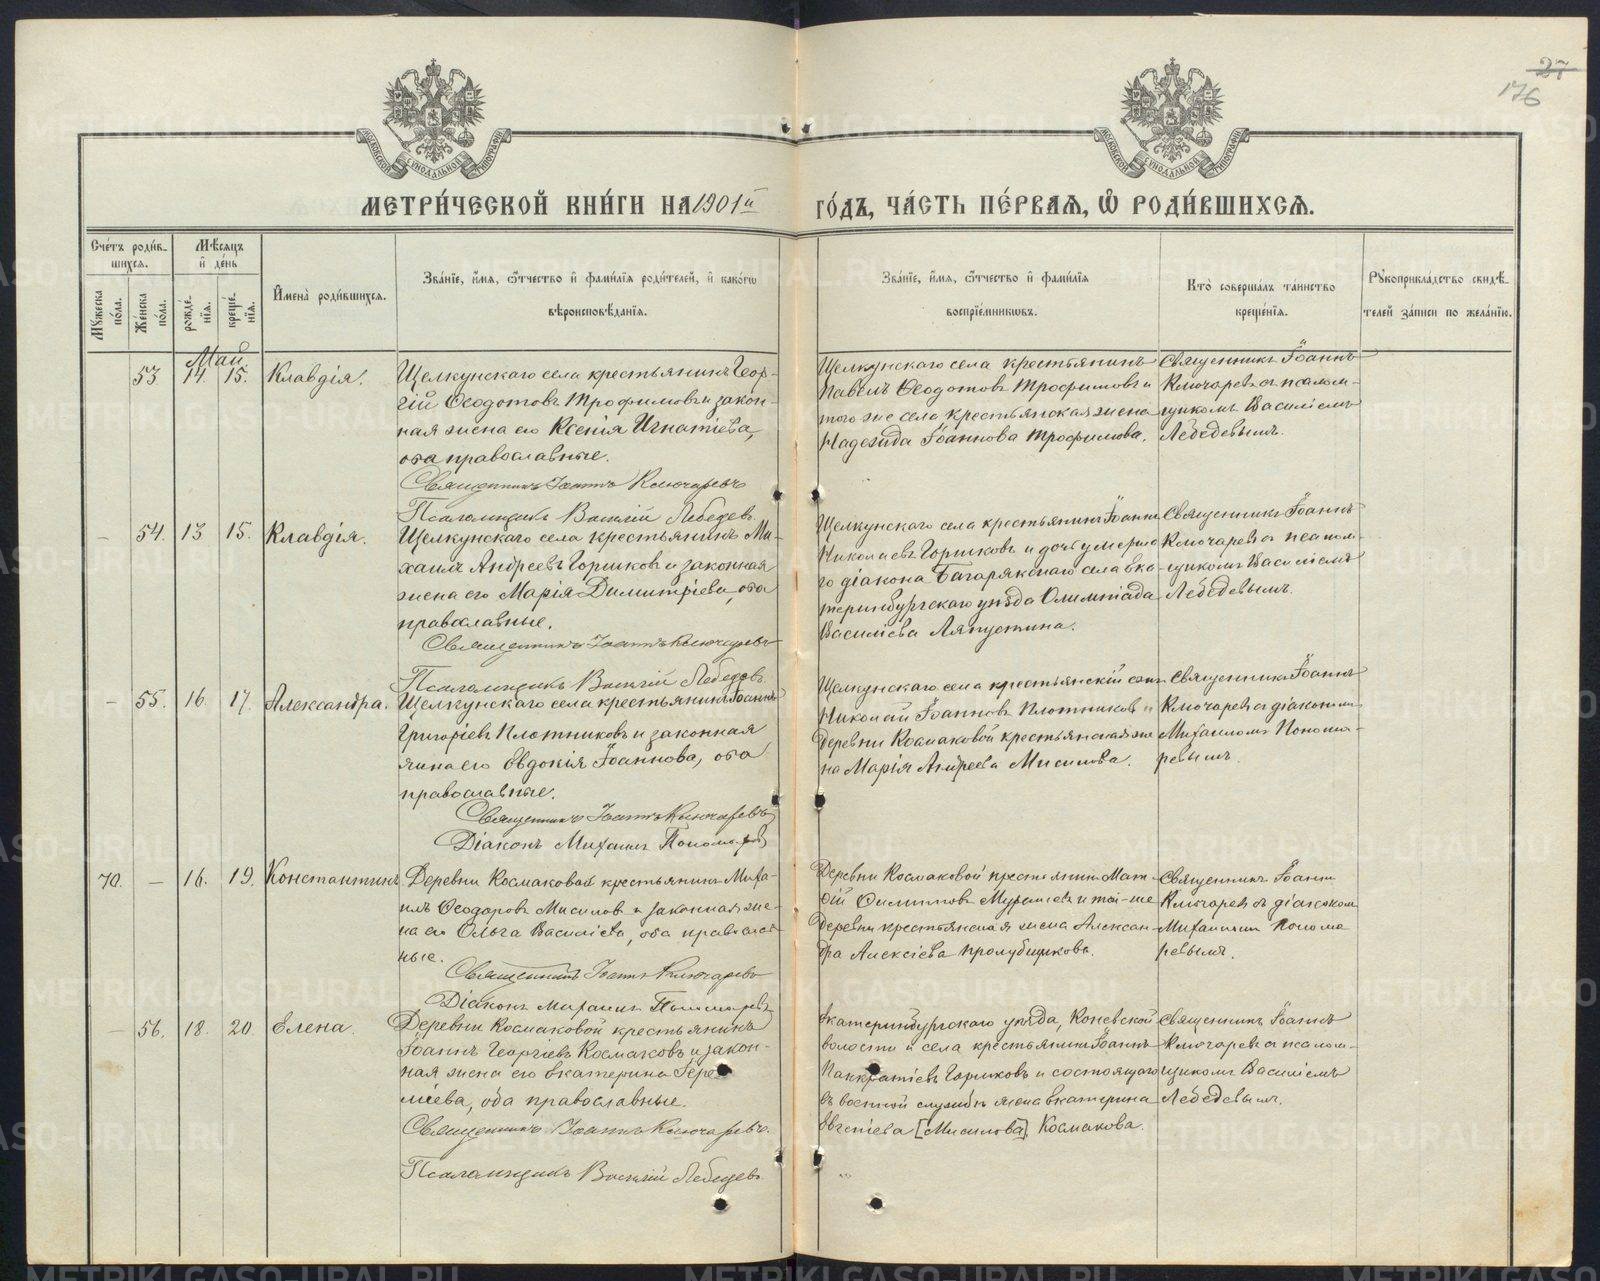 27
176
МЕТРИ́ЧЕСКОЙ КНИ́ГИ НА 1901й ГО́ДЪ, ЧА́СТЬ ПЕ́РВАЯ, Ѡ҆ РОДИ́ВШИХСЯ.
Сче́тъ роди́в-
шихся.
Мѣ́сяцъ
и҆ де́нь
Мꙋ́жеска по́ла.
Же́нска по́ла.
рожде́-
нїя.
креще́-
нїя.
И҆мена̀ роди́вшихся.
Зва́нїе, и҆́мя, ѻ҆́тчество и҆ фами́лїя роди́телей, и҆ како́гѡ
вѣроисповѣ́данїя.
Зва́нїе, и҆́мя, ѻ҆́тчество и҆ фами́лїя
воспрїе́мникѡвъ.
Кто̀ соверша́лъ та́инство
креще́нїя.
Рꙋкоприкла́дство свидѣ́-
телей за́писи по жела́нїю.
Май
53 14. 15. Клавдія.
Щелкунскаго села крестьянинъ Геор-
гій Ѳеодотовъ Трофимовъ и закон-
ная жена его Ксенія Игнатіева,
оба православные.
Священникъ Іоаннъ Ключаревъ
Псаломщикъ Василій Лебедевъ
Щелкунскаго села крестьянинъ
Павелъ Ѳеодотовъ Трофимовъ и
того же села крестьянская жена
Надежда Іоаннова Трофимова.
Священникъ Іоаннъ
Ключаревъ съ псалом-
щикомъ Василіемъ
Лебедевымъ.
– 54. 13 15. Клавдія.
Щелкунскаго села крестьянинъ Ми-
хаилъ Андреевъ Горшковъ и законная
жена его Марія Димитріева, оба
православные.
Священникъ Іоаннъ Ключаревъ
Псаломщикъ Василій Лебедевъ
Щелкунскаго села крестьянинъ Іоаннъ
Николаевъ Горшковъ и дочь умерша-
го діакона Багарякскаго села Ека-
теринбургскаго уѣзда Олимпіада
Василіева Ляпустина.
Священникъ Іоаннъ
Ключаревъ съ псалом-
щикомъ Василіемъ
Лебедевымъ.
– 55. 16. 17. Александра.
Щелкунскаго села крестьянинъ Іоаннъ
Григоріевъ Плотниковъ и законная
жена его Евдокія Іоаннова, оба
православные.
Священникъ Іоаннъ Ключаревъ
Діаконъ Михаилъ Пономаревъ
Щелкунскаго села крестьянскій сынъ
Николай Іоанновъ Плотниковъ и
деревни Космаковой крестьянская же-
на Марія Андреева Мисилова.
Священникъ Іоаннъ
Ключаревъ съ діакономъ
Михаиломъ Понома-
ревымъ.
70. – 16. 19. Константинъ
Деревни Космаковой крестьянинъ Миха-
илъ Ѳеодоровъ Мисиловъ и законная же-
на его Ольга Василіева, оба православ-
ные.
Священникъ Іоаннъ Ключаревъ
Діаконъ Михаилъ Пономаревъ
Деревни Космаковой крестьянинъ Мат-
деревни крестьянская жена Алексан-
дра Алексіева Пролубщикова.
Священникъ Іоаннъ
Ключаревъ съ діаконом
Михаиломъ Понома
ревымъ.
– 56. 18. 20. Елена.
Деревни Космаковой крестьянинъ
Іоаннъ Георгіевъ Космаковъ и закон-
ная жена его Екатерина Іере-
міева, оба православные.
Священникъ Іоаннъ Ключаревъ.
Псаломщикъ Василій Лебедевъ
Екатеринбургскаго уѣзда, Коневской
волости и села крестьянинъ Іоаннъ
Панкратіевъ Горшковъ и состоящаго
въ военной службѣ жена Екатерина
Евгеніева [Мисилова] Космакова.
Священникъ Іоаннъ
Ключаревъ съ псалом-
щикомъ Василіемъ
Лебедевымъ.